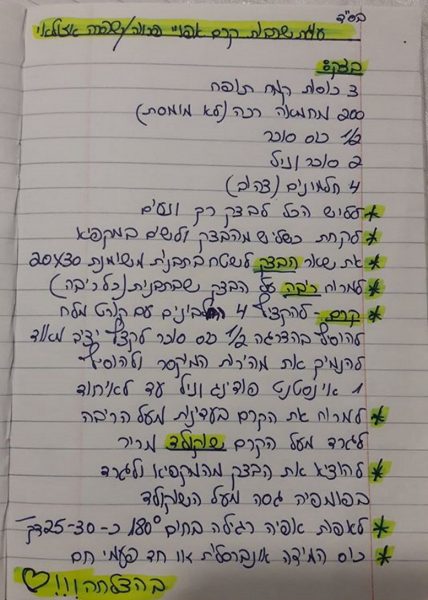 בס"ד
עוגת שכבות קרם אפויי פרווה/
בצק:
3 כוסות קמח תופח
200 מחמאה רכה (לא מומסת)
1/2 כוס סוכר
2 סוכר וניל
4 חלמונים (צהוב)
* ללוש הכל לבצק רק ונעים
* לקחת כשליש מהבצק ולשים במקפיא
* את שאר הבצק לשטח בתבנית משומנת 20x30
* למרוח ריבה על הבצק שבתבנית (כל ריבה)
* קרם - להקציף 4 חלבינים עם קורט מלח
להוסיף בהדרגה 1/2 כוס סוכר לקצף יציב מאוד
להנמיך את מהירות המיקסר ולהוסיף
1 אינסטנט פודינג וניל עד לאיחוד
* למרוח את הקרם בעדינות מעל הריבה
לגרד מעל הקרם שוקולד מריר
* להוציא את הבצק מהמקפיא ולגרד
בפומפיה גסה מעל השוקולד
* לאפות אפיה רגילה בחום 180° כ-25-30 דק'
* כוס המידה אוניברסלית או חד פעמי חם
בהצלחה!!!♡